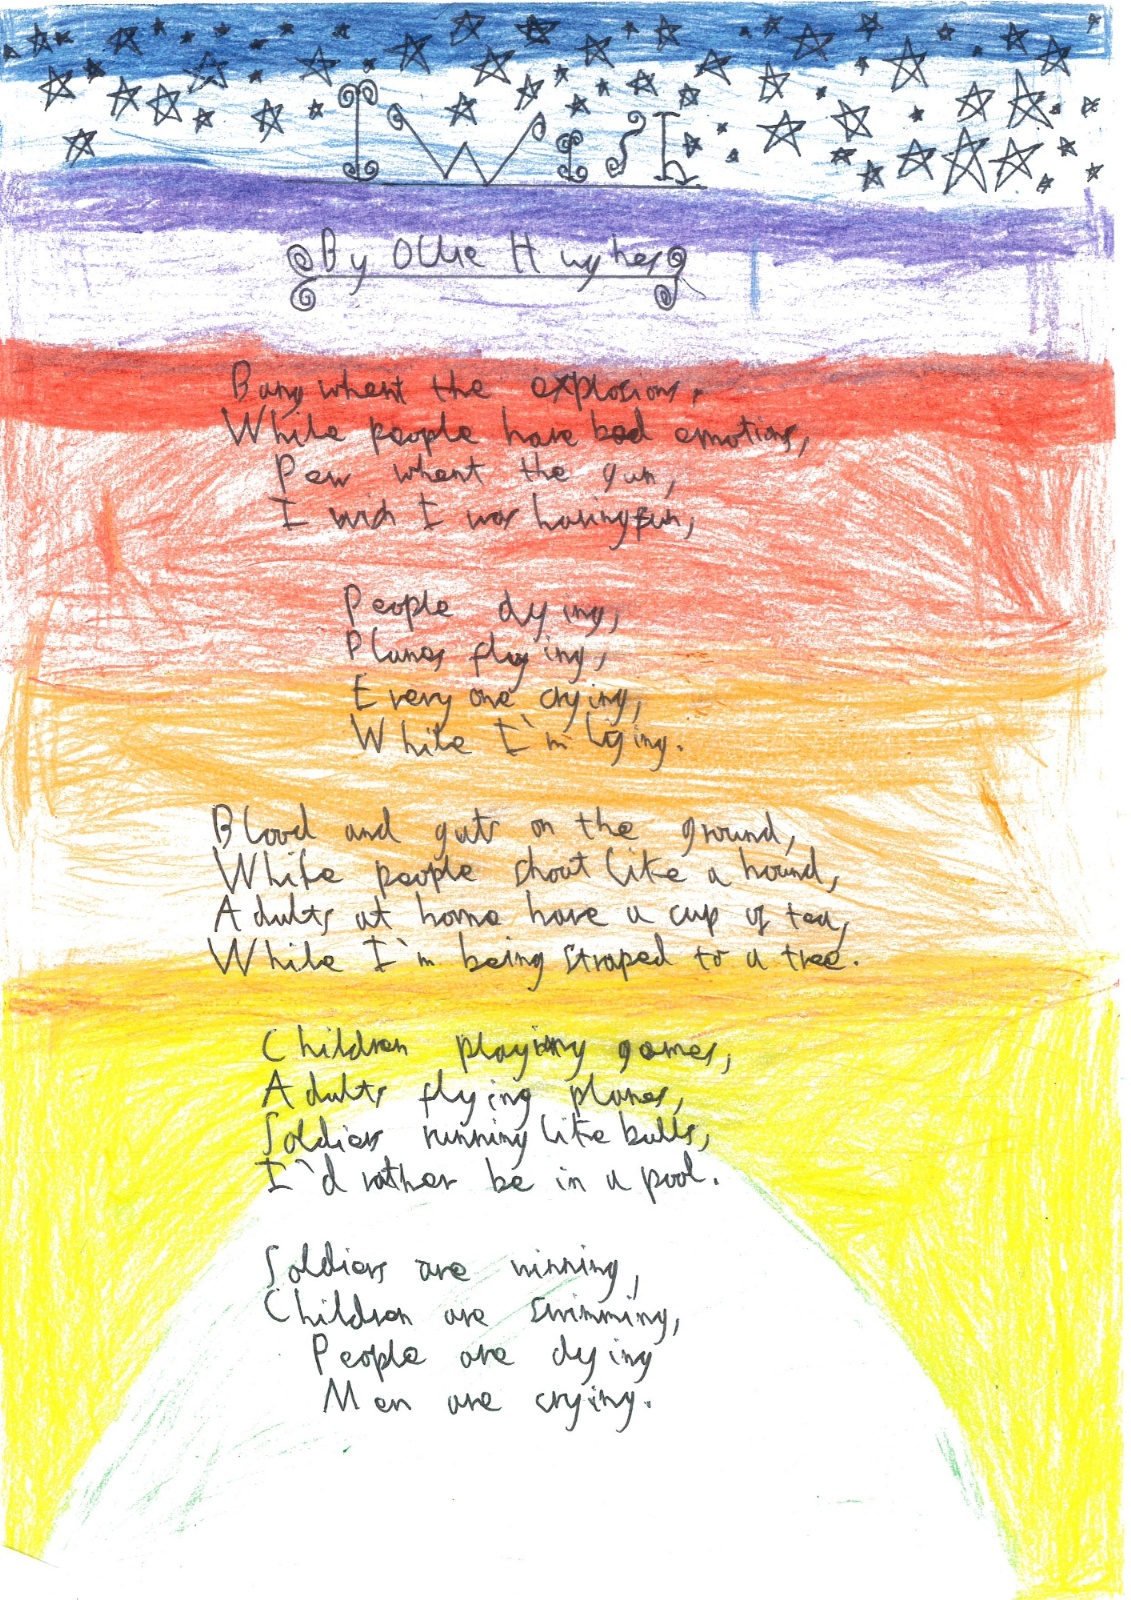 I Wish
By Ollie Hughes
Bang whent the explosions,
While people have bad emotions,
Pew whent the gun,
I wish I was having fun,
People dying,
Planes flying,
Every one crying,
While I'm lying.
Blood and guts on the ground,
While people shout like a hound,
Adults at home have a cup of tea,
While I'm being straped to a tree.
Children playing games,
Adults flying planes,
Soldiers running like bulls,
I'd rather be in a pool.
Soldiers are winning,
Children are swimming,
People are dying
Men are crying.